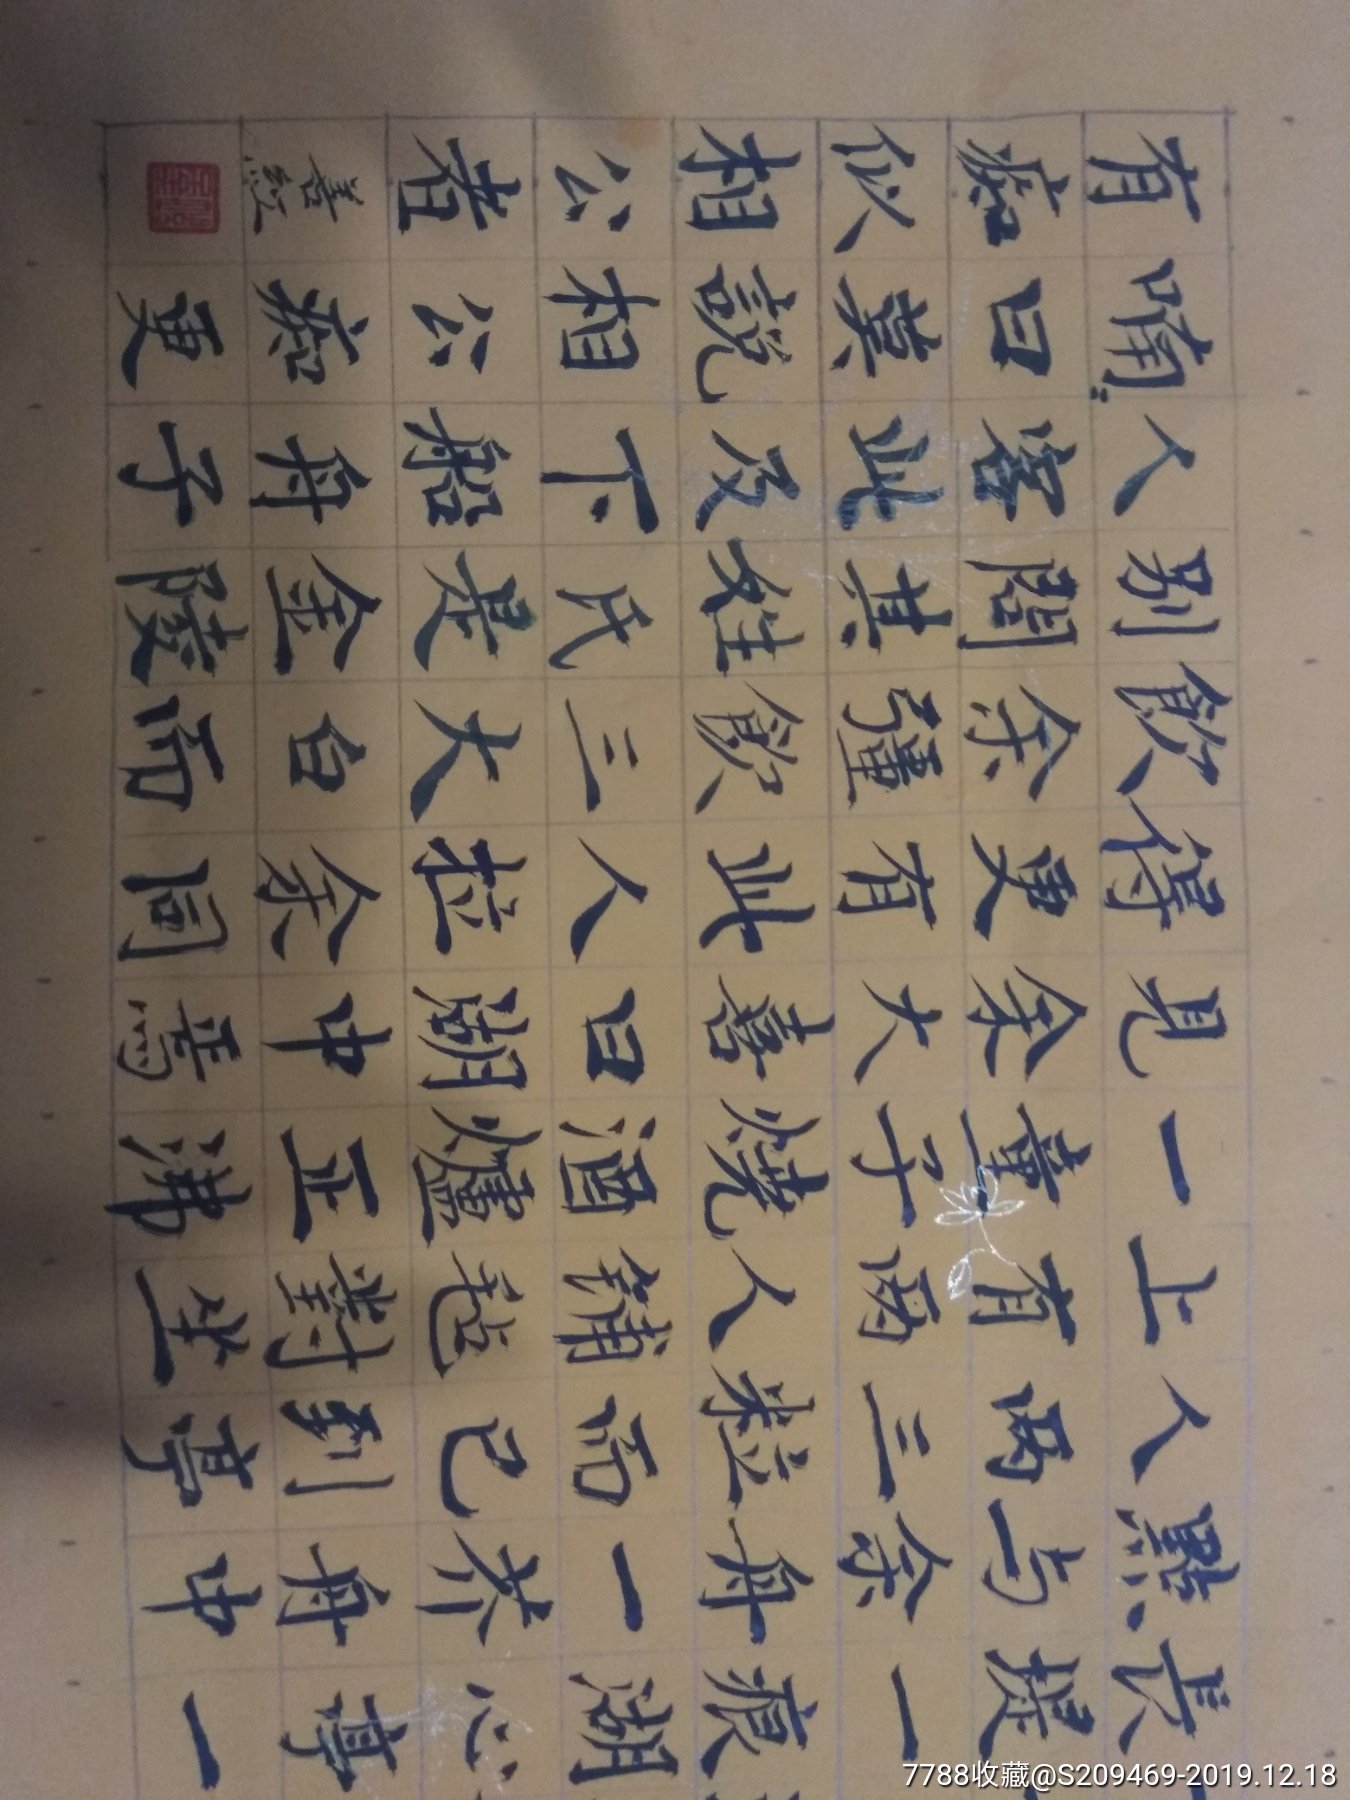 長堤一痕湖心亭一
點与余舟一芥舟中
人兩三粒而已到亭
上有兩人鋪毡對坐
一童子燒酒爐正沸
見余大喜曰湖中焉
得更有此人拉余同
飲余彊飲三大白而
別問其姓氏是金陵
人客此及下船舟子
喃〻曰莫說相公痴更
有痴似相公者
7788收藏@S209469-2019.12.18